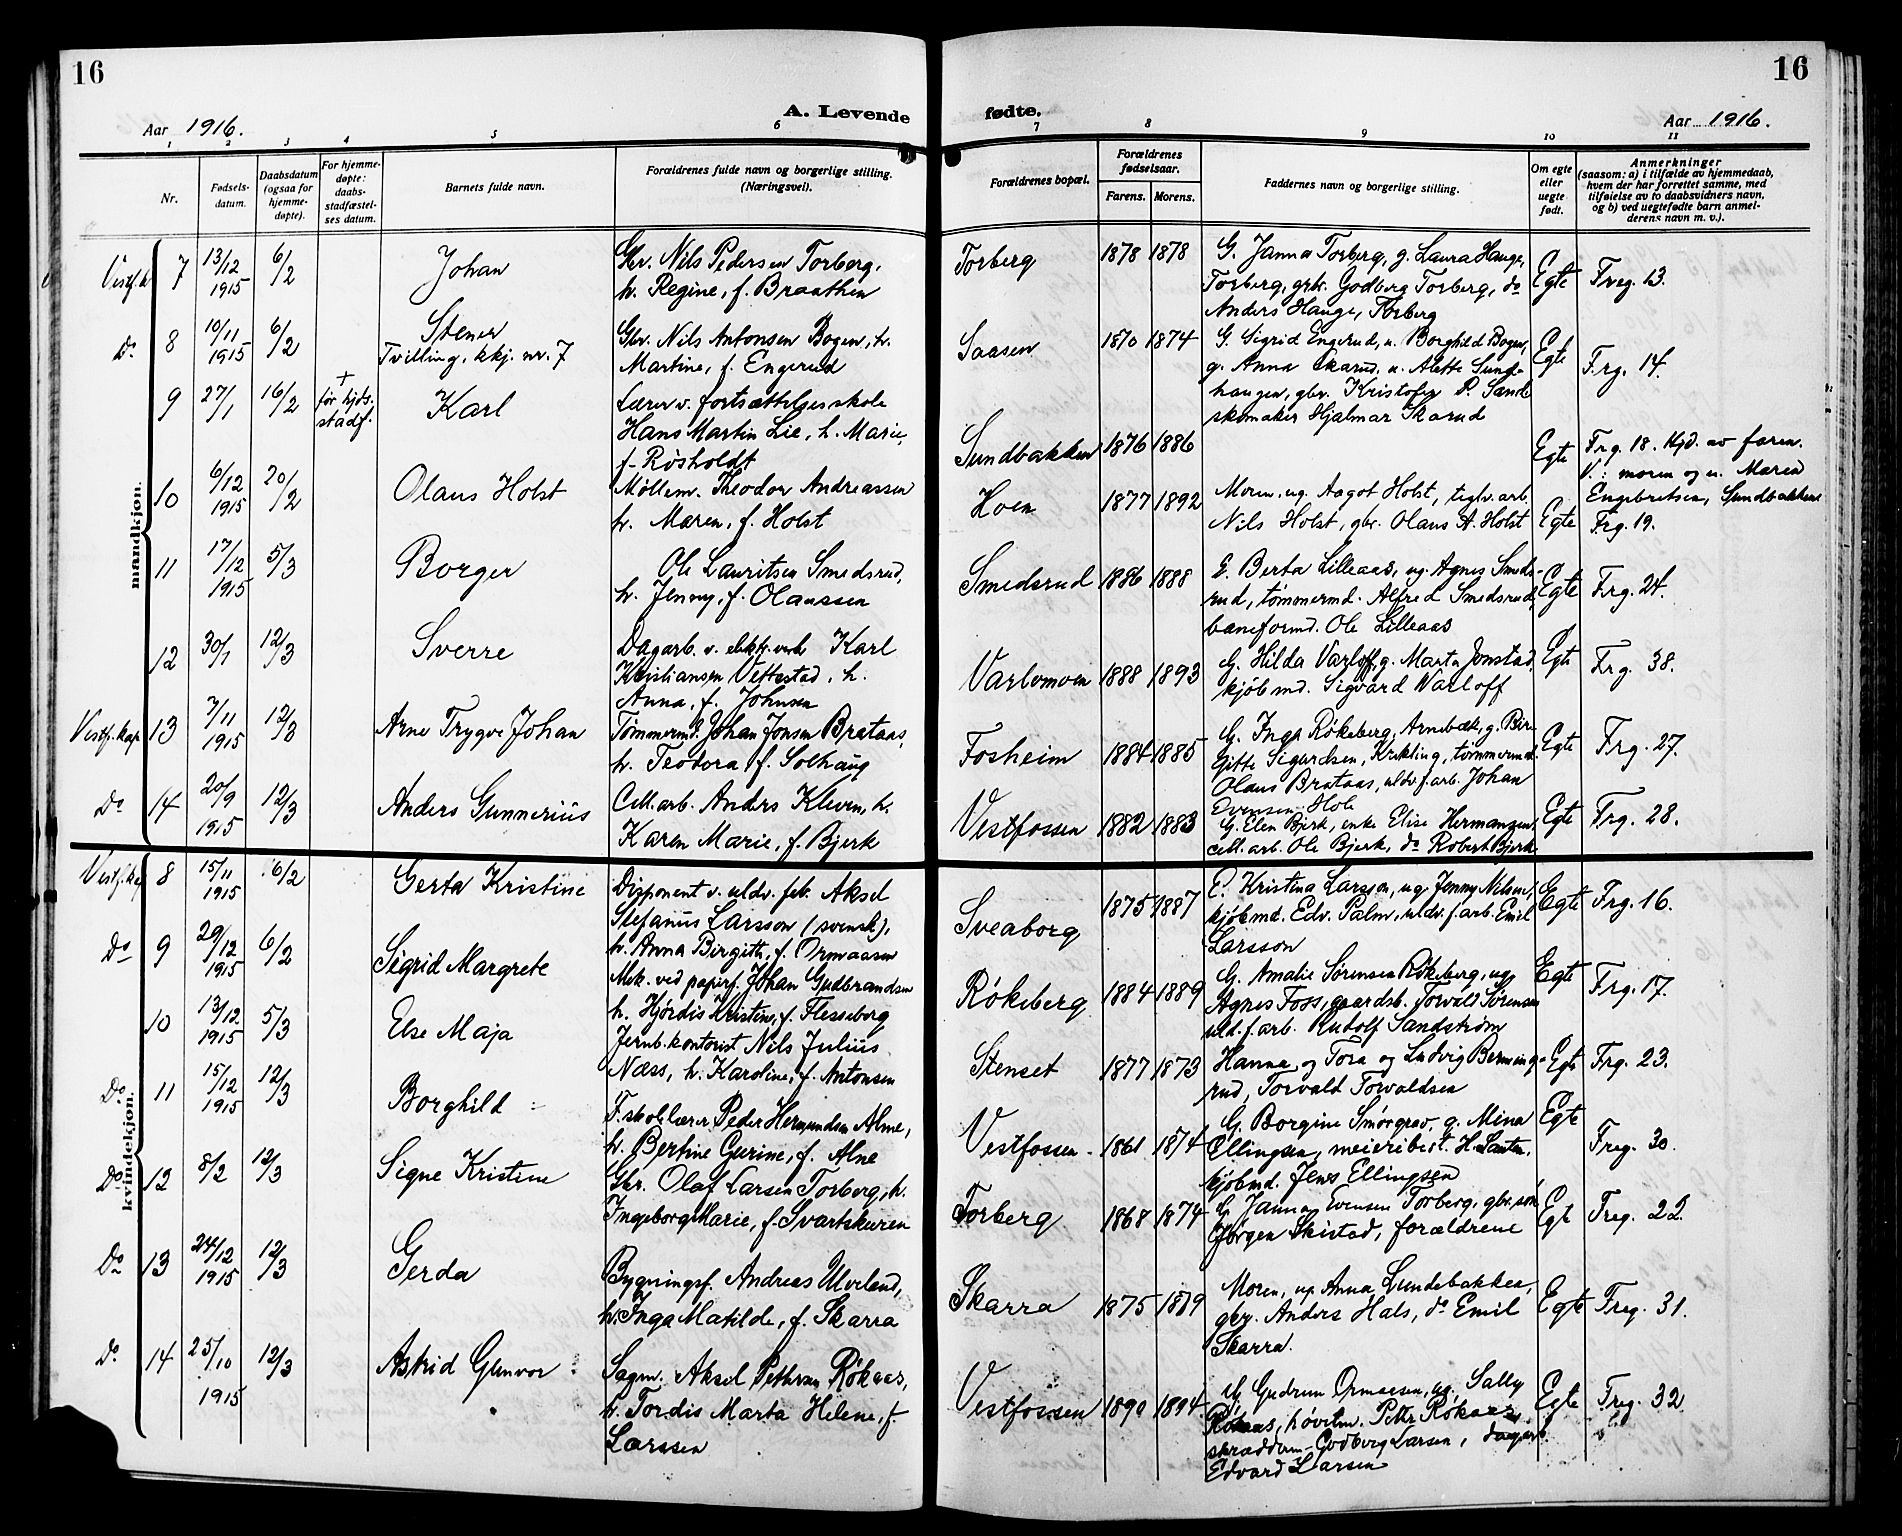 16
16
A. Levende fødte.
Aar 1916.
Aar 1916.
1 2 3 4 5 6 7 8 9 10 11
Nr.
Fødsels-
datum.
Daabsdatum
(ogsaa for
hjemme-
døpte).
For hjemme-
døpte:
daabs-
stadfæstel-
ses datum.
Barnets fulde navn.
Forældrenes fulde navn og borgerlige stilling.
(Næringsvei).
Forældrenes bopæl.
Forældrenes
fødselsaar.
Farens. Morens.
Faddernes navn og borgerlige stilling.
Om egte
eller
uegte
født.
Anmerkninger
(saasom: a) i tilfælde av hjemmedaab,
hvem der har forrettet samme, med
tilføielse av to daabsvidners navn,
og b) ved uegtefødte barn anmel-
derens navn m. v.).
mandkjøn.
7 13/12 1915 6/2 Johan
Gbr. Nils Pedersen Torberg,
h. Regine, f. Braathen
Torberg 1878 1878
G. Janna Torberg, g. Laura Hauge,
Torberg, gbr. Godberg Torberg, do
Anders Hauge, Torberg
Egte Freg. 13.
Do 8 10/11 1915 6/2 Stener
Tvilling, kkj. nr. 7
Gbr. Nils Antonsen Bogen, h.
Martine, f. Engerud
Saasen 1870 1874
G. Sigrid Engerud, u. Borghild Bogen,
g. Anna Skarud, u. Alette Sund-
haugen, gbr. Kristofer P. Sande
skomaker Hjalmar Skarud
Egte Frg. 14.
9 27/1 16/2 + før hjds.
stadf. Karl
Lærer v. fortsættelsesskole
Hans Martin Lie, h. Marie,
f. Røsholdt
Sundbakken 1876 1886
Egte Frg. 18. Hjd. av faren.
V: moren og u. Maren
Engebretsen, Sundbakken
10 6/12 1915 20/2 Olaus Holst
Møllem. Theodor Andreassen
h. Maren, f. Holst
Hoen 1877 1892
Moren, ug. Aagot Holst, teglv.arb.
Nils Holst, gbr. Olaus A. Holst
Egte Frg. 19.
11 17/12 1915 5/3 Borger
Ole Lauritsen Smedsrud,
h. Jenny, f. Olaussen
Smedsrud 1886 1888
G. Berta Lilleaas, ug. Agnes Smeds-
rud, tømmermd. Alfred Smedsrud,
baneformd. Ole Lilleaas
Egte Frg. 24.
12 30/1 12/3 Sverre
Dagarb. v. elektr. verk Karl
Kristiansen Vettestad, h.
Anna, f. Johnsen
Varlomoen 1888 1893
G. Hilda Varloff, g. Marta Jonstad,
kjøbmd. Sigvard Varloff
Egte Frg. 38.
Vestf. kap. 13 7/11 1915 12/3 Arne Trygve Johan
Tømmermd. Johan Jonsen Brataas,
h. Teodora, f. Solhaug
Fosheim 1884 1885
G. Inga Røkeberg, Arnebæk, g. Bir-
gitte Sigurdsen, Krekling, tømmermd.
Olaus Brataas, uldv.f.arb. Johan
Evensen Hole
Egte Frg. 27.
Do 14 20/9 1915 12/3 Anders Gunnerius
Cell.arb. Anders Kleven, h.
Karen Marie, f. Bjerk
Vestfossen 1882 1883
G. Elen Bjerk, enke Elise Hermansen,
cell.arb. Ole Bjerk, do Robert Bjerk
Egte Frg. 28.
kvindekjøn.
Vestf.kap 8 15/11 1915 6/2 Gerta Kristine
Disponent v. uldv. fab. Aksel
Stefanius Larsson (svensk),
h. Anna Birgith, f. Ormaasen
Sveaborg 1875 1887
G. Kristina Larsson, ug. Jenny Nilsen,
kjøbmd. Edv. Palm, uldv.f.arb. Emil
Larsson
Egte Frg. 16.
Do 9 29/12 1915 6/2 Sigrid Margrete
Mek. ved papirf. Johan Gudbrandsen
h. Hjørdis Kristine, f. Flesseberg
Røkeberg 1884 1889
G. Amalie Sørensen Røkeberg, ug.
Agnes Foss, gaardsb. Torvald Sørensen
uld.f.arb. Rudolf Sandstrøm
Egte Frg. 17.
10 13/12 1915 5/3 Else Maja
Jernb.kontorist Nils Julius
Næss, h. Karoline, f. Antonsen
Stenset 1877 1873
Hanna og Tora og Ludvig Berming-
rud, Torvald Torvaldsen
Egte Frg. 23.
Do 11 15/12 1915 12/3 Borghild
F.skolelærer Peder Hermundsen Alme,
h. Bertine Gurine, f. Alne
Vestfossen 1861 1874
G. Borgine Smørgrav, g. Mina
Ellingsen, meieribest. H. Santen,
kjøbmd. Jens Ellingsen
Egte Freg. 30.
Do 12 8/2 12/3 Signe Kristine
Gbr. Olaf Larsen Torberg, h.
Ingeborg Marie, f. Svartskuren
Torberg 1868 1874
G. Janna Evensen Torberg, gbr.søn
Jørgen Skistad, forældrene
Egte Freg. 22.
Do 13 24/12 1915 12/3 Gerda
Bygningsf. Andreas Ulveland,
h. Inga Matilde, f. Skarra
Skarra 1875 1879
Moren, ug. Anna Lundebakken,
gbr. Anders Hals, do Emil
Skarra.
Egte Freg. 31.
Do 14 25/10 1915 12/3 Astrid Gunvor
Sagm. Aksel Pettersen Røkaas,
h. Tordis Marta Helene, f.
Larssen
Vestfossen 1890 1894
G. Gudrun Ormaasen, ug. Sally
Røkaas, høvelm. Petter Røkaas
skrædderm. Godberg Larsen, dagarb.
Edvard Larsen
Egte Freg. 32